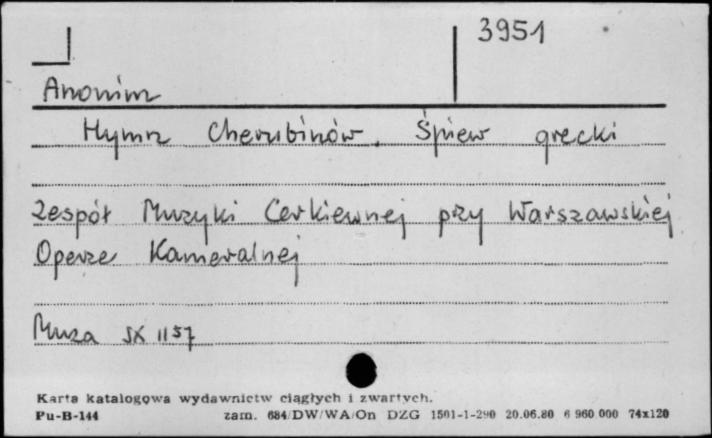 3951
Anonim
Hymn Cherubinów. Śpiew grecki
Zespół Muzyki Cerkiewnej przy Warszawskiej
Operze Kameralnej
Muza SX 1157
Karta katalogowa wydawnictw ciągłych i zwartych.
Pu-B-144 zam. 684/DW/WA/On DZG 1501-1-290 20.06.80 6 960 000 74x120